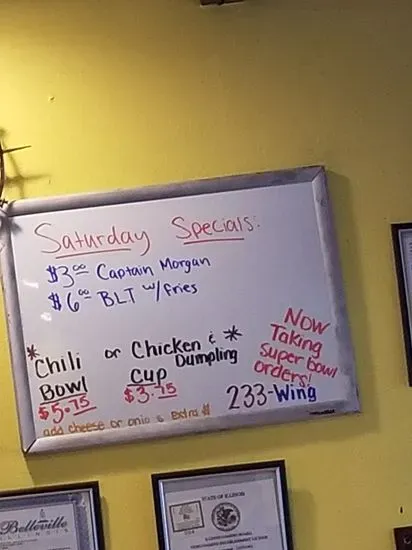 Saturday Specials:
$3.00 Captain Morgan
$6.00 BLT w/fries
* Chili or Chicken & * Dumpling
Bowl Cup
$5.75 $3.75
add cheese or onio s extra $
Now
Taking
Super Bowl
orders!
233-Wing
Belleville
ILLINOIS
STATE OF ILLINOIS
ILLINOIS GAMING BOARD